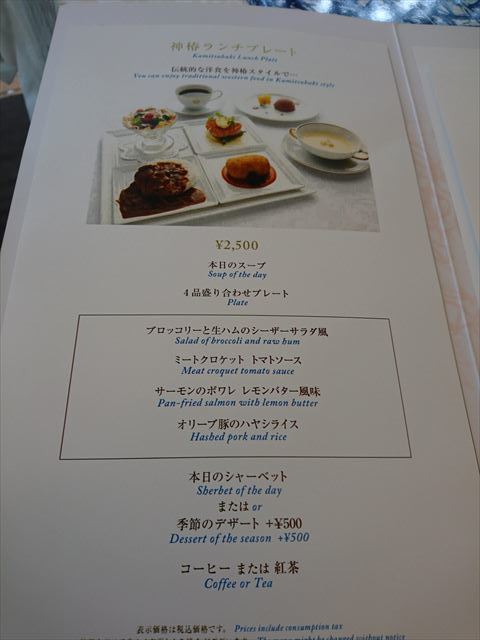 神椿ランチプレート
Kamitsubaki Lunch Plate
伝統的な洋食を神椿スタイルで…
You can enjoy traditional western food in Kamitsubaki style
¥2,500
本日のスープ
Soup of the day
4品盛り合わせプレート
Plate
ブロッコリーと生ハムのシーザーサラダ風
Salad of broccoli and raw hum
ミートクロケット トマトソース
Meat croquet tomato sauce
サーモンのポワレ レモンバター風味
Pan-fried salmon with lemon butter
オリーブ豚のハヤシライス
Hashed pork and rice
本日のシャーベット
Sherbet of the day
または or
季節のデザート +¥500
Dessert of the season +¥500
コーヒー または 紅茶
Coffee or Tea
表示価格は税込価格です。 Prices include consumption tax
The menu might be changed without notice